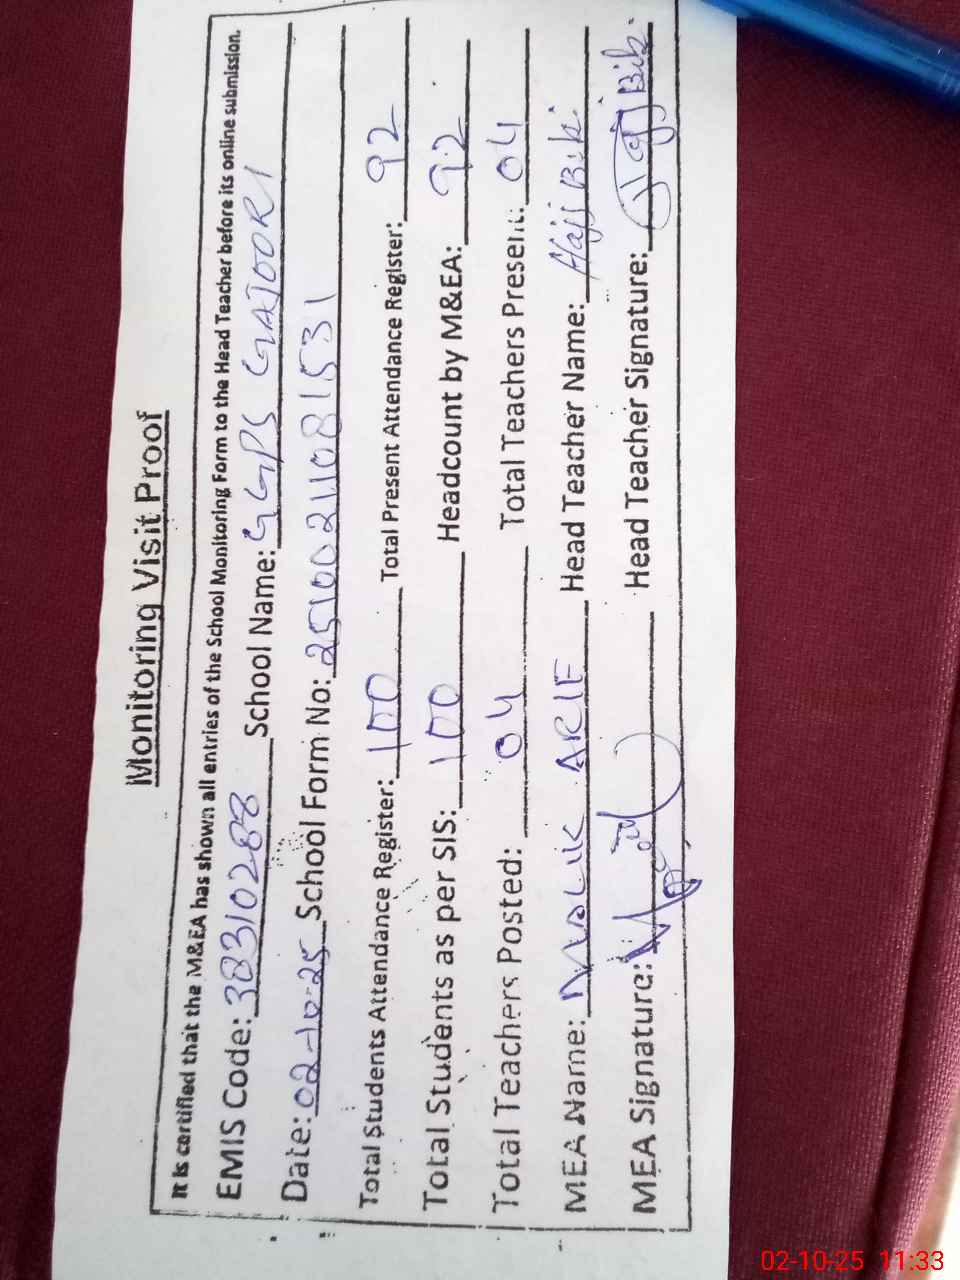 Monitoring Visit Proof
It is certified that the M&EA has shown all entries of the School Monitoring Form to the Head Teacher before its online submission.
EMIS Code: 38310288 School Name: GGPS GAJOORI
Date: 02-10-25 School Form No: 25100211081531
Total Students Attendance Register: 100 Total Present Attendance Register: 92
Total Students as per SIS: 100 Headcount by M&EA: 92
Total Teachers Posted: 04 Total Teachers Present: 04
MEA Name: MALIK ARIF Head Teacher Name: Hajj Bibi
MEA Signature: Head Teacher Signature:
02-10-25 11:33